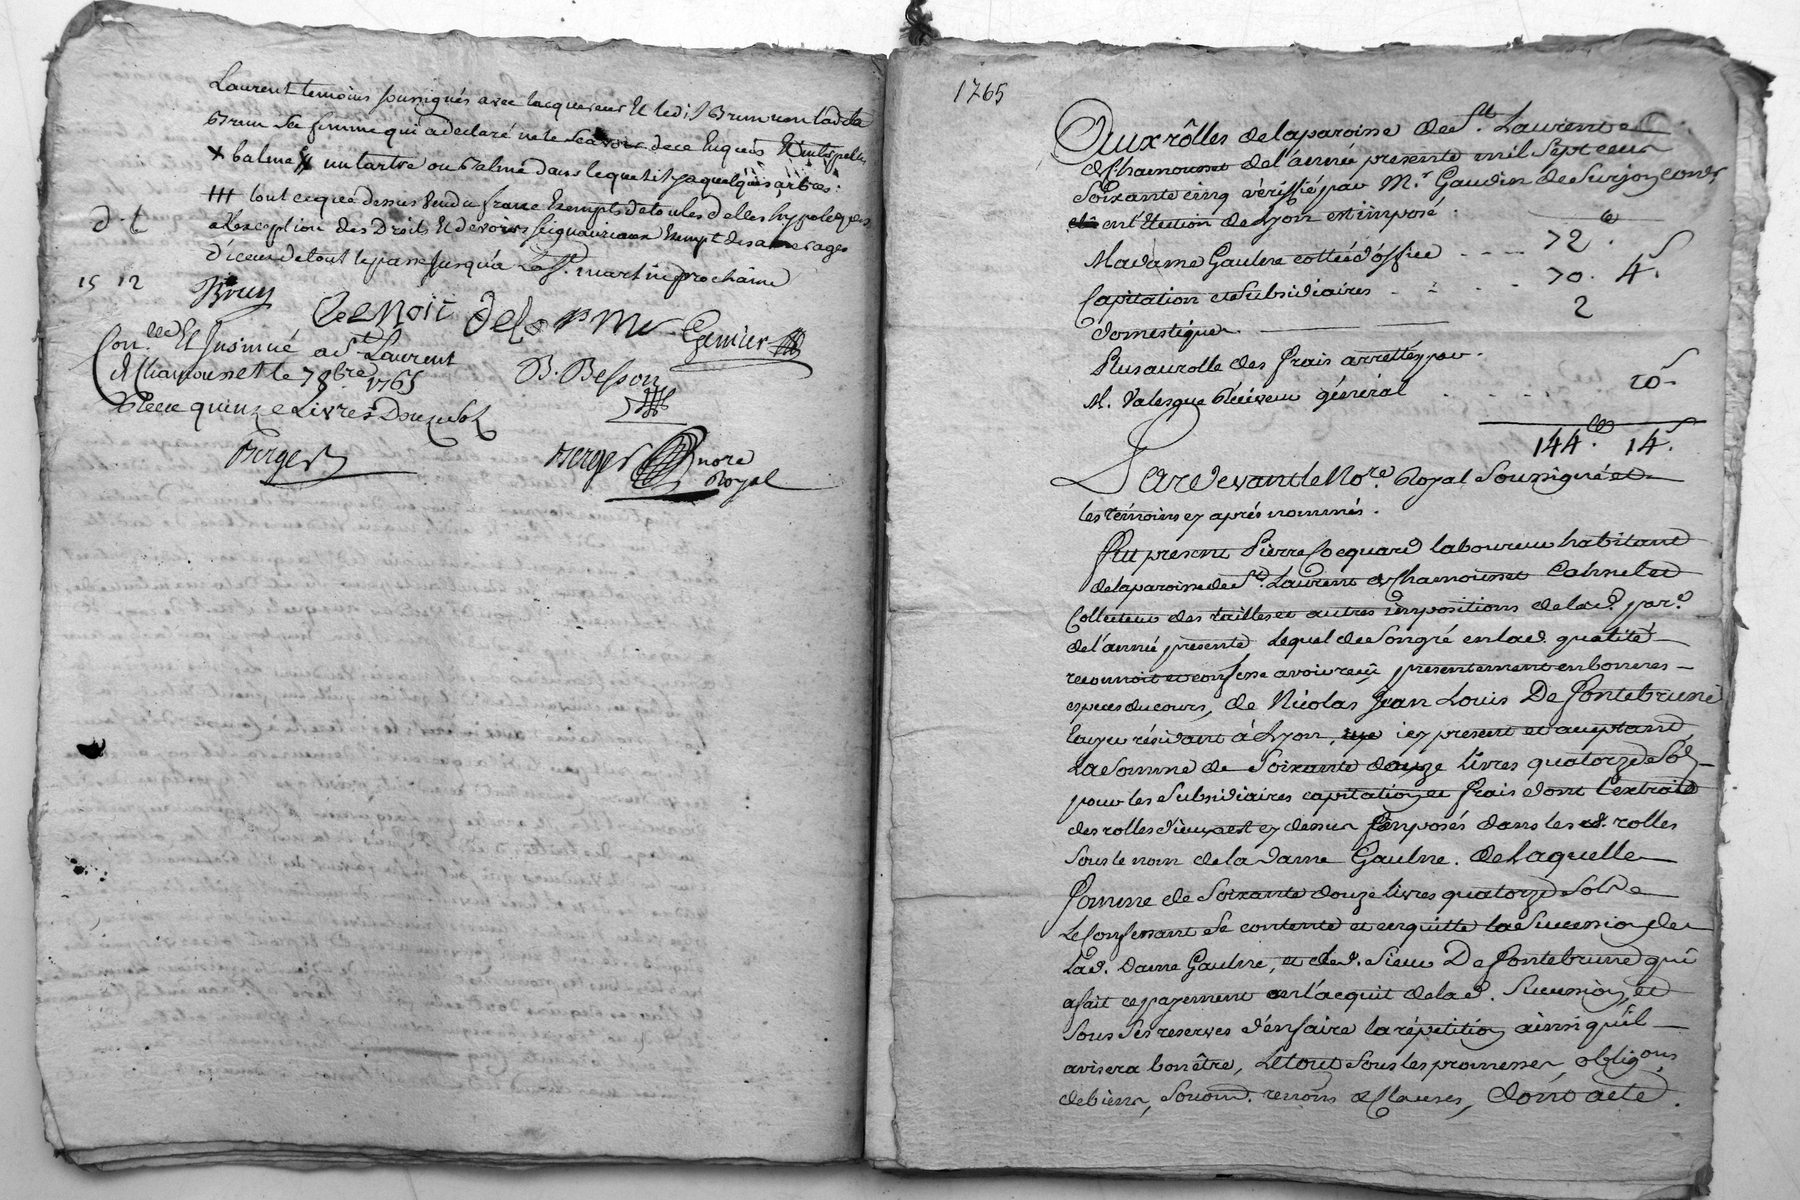 Laurent temoins soussignés avec lacquereur Et ledit Brun non lad.
Brun sa femme qui a declaré ne le scavoir de ce Enquis Et interpellés
X balme // un tartre ou balme dans lequel il y a quelques arbres.
/// tout ce que dessus vendu franc Exempts de toutes dettes hypoteques
a l'exception des Droits Et devoirs seigneuriaux Exempt des arrerages
d'iceux de tout le passé jusqu'a la St. martin prochaine
d. t.
15 12
Bruy
Lenoir delorme Genier
Con.lé Et Insinué a St. Laurent
de Chamousset le 7 8bre. 1765
B. Besson
Reçu quinze Livres Douze sols
Berger
Berger nore
Royal
1765
Aux rôlles de la paroisse de St. Laurent
de Chamousset de l'année presente mil sept cent
soixante cinq vérifié par Mr. Gaudin de Surjon
en l'Election de Lyon est imposé.
Madame Gaulne cottée d'office - - - - 72 .
Capitation et subsidiaires . - . - . 70 . 4 .
domestique 2
Plus au rolle des frais arrettés par
M. Valesque Réceveur général . . . . . 10
144. 14.
Pardevant le No.re Royal soussigné et
les témoins cy après nommés.
fut present Pierre Cocquard laboureur habitant
de la paroisse de St. Laurent de Chamousset
Collecteur des tailles et autres impositions de lad. par.
de l'année presente Lequel de son gré en lad. qualité
reconnoit et confesse avoir reçû presentement en bonnes
especes du cours, de Nicolas Jean Louis De Fontebrune
Ecuyer résidant à Lyon, icy present et acceptant
La somme de soixante douze livres quatorze sols
pour les subsidiaires capitation et frais dont l'extrait
des rolles d'iceux est cy dessus imposés dans les d. rolles
sous le nom de la dame Gaulne. de Laquelle
somme de soixante douze livres quatorze sols
Le Confessant se contente et en quitte la succession de
Lad. dame Gaulne, et led. sieur De Fontebrune qui
a fait ce payement en l'acquit de lad. succession, et
sous ses reserves d'en faire la répetition ainsi qu'il
avisera bon être, Le tout sous les promesses, obligons
de biens, soumd. renons & Clauses, dont acte.